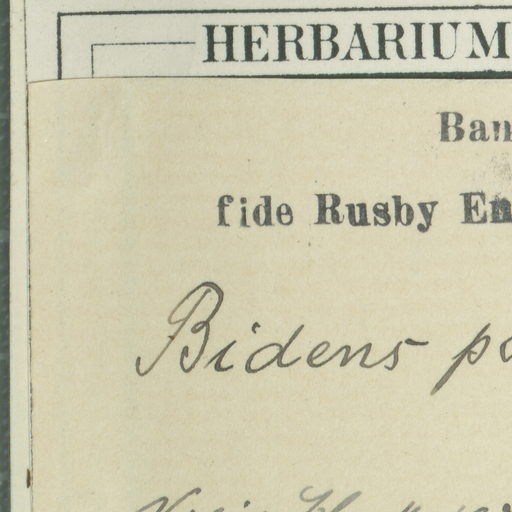 HERBARIUM
Ban
fide Rusby En
Bidens po